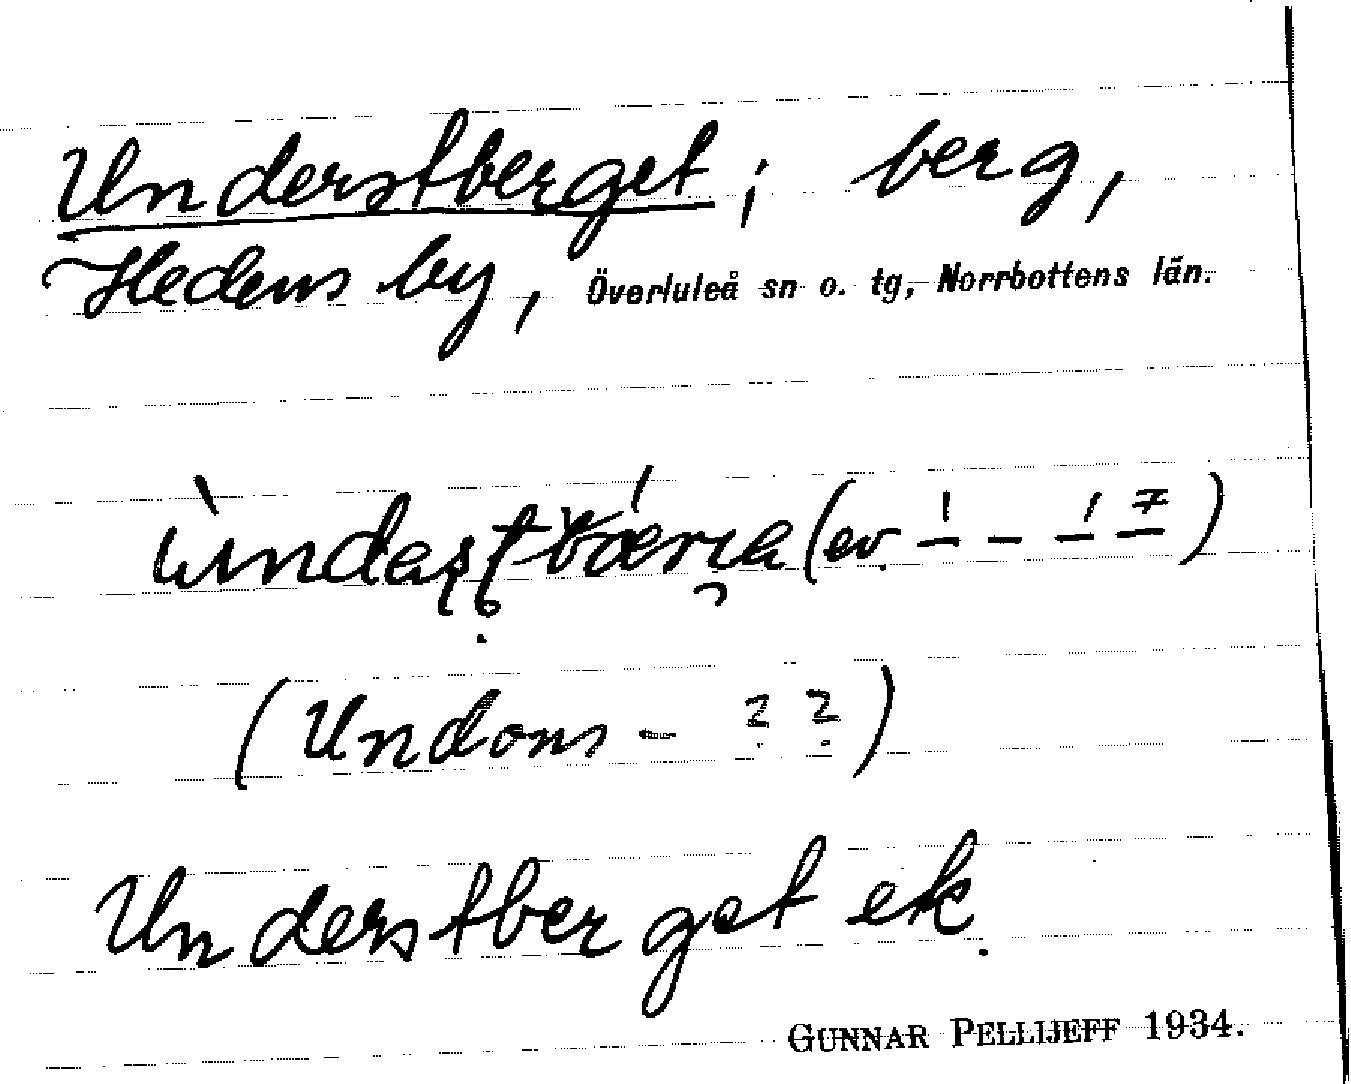 Understberget; berg,
Hedens by, Överluleå sn o. tg, Norrbottens län.
(ev.
(Undoms - ??)
Understberget ek.
GUNNAR PELLIJEFF 1934.